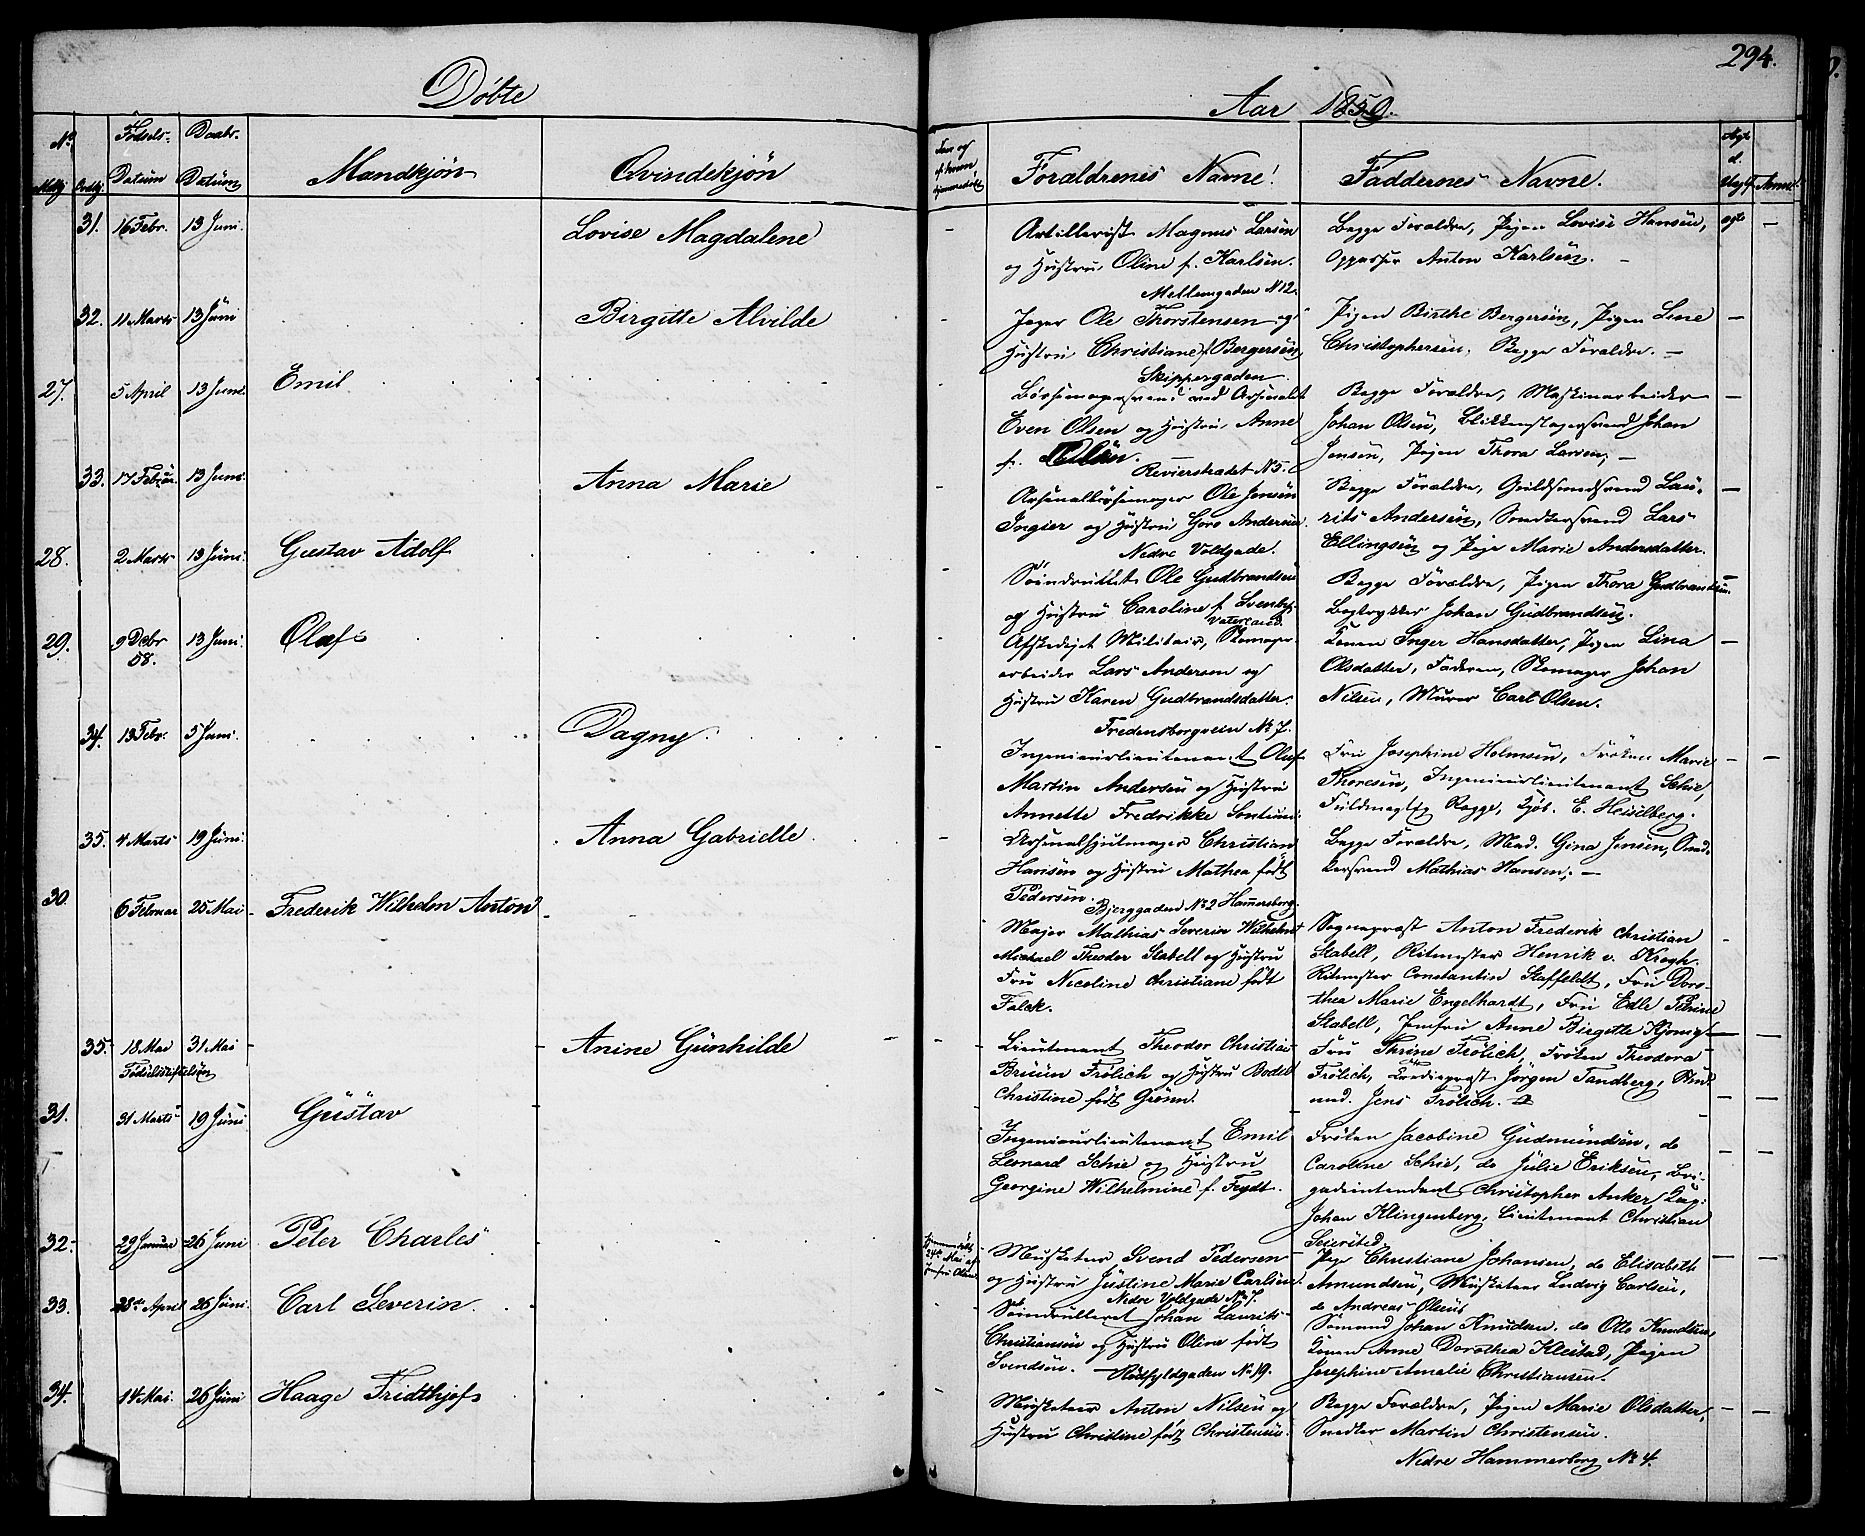 294.
Døbte
Aar 1859.
No. Fødsels- Daabs-
Mandkjøn Qvindekjøn
Datum Datum
Forældrenes Navne. Faddernes Navne.
31. 16 Febr. 13 Juni. Lovise Magdalene
Artillerist Magnus Larsen
og Hustru Oline f. Karlsen.
Mellemgaden N 12.
Begge Forældre, Pigen Lovise Hansen,
Oppasser Anton Karlsen. —
ægte —
32. 11 Marts 13 Juni Birgitte Alvilde
Jæger Ole Thorstensen og
Hustru Christiane f. Bergersen,
Skippergaden
Pigen Birthe Bergersen, Pigen Line
Christophersen, Begge Forældre. —
27. 5 April 13 Juni. Emil
Even Olsen og Hustru Anne
f. Olsen.
Revierstrædet N 5.
Begge Forældre, Maskinarbeider
Johan Olsen, Blikkenslagersvend Johan
Jensen, Pigen Thora Larsen, —
33. 17 Februar. 13 Juni. Anna Marie
Arsenalbøssemager Ole Jensen
Ingier og Hustru Goro Andersen.
Nedre Voldgade.
Begge Forældre, Guldsmedsvend Lau-
rits Andersen, Snedkersvend Lars
Ellingsen og Pige Marie Andersdatter.
28. 2 Marts 13 Juni. Gustav Adolf
Søindrullet Ole Gudbrandsen
og Hustru Caroline f. Svenby,
Vaterland.
Begge Forældre, Pigen Thora Gudbrandsen.
Bogtrykker Johan Gudbrandsen.
29. 9 Decbr 58. 13 Juni. Olaf
Afskediget Militair, Skomager-
arbeider Lars Andersen og
Hustru Karen Gudbrandsdatter.
Fredensborgveien No. 7.
Konen Inger Hansdatter, Pigen Lina
Olsdatter, Faderen, Skomager Johan
Nilsen, Murer Carl Olsen.
34. 13 Febr. 5 Juni. Dagny.
Ingenieurlieutenant Oluf
Martin Andersen og Hustru
Annette Fredrikke
Fru Josephine Holmsen, Frøken Marie
Thoresen, Ingenieurlieutenant Schie,
Fuldmægtig Bagge, E. Heiselberg.
35. 4 Marts 19 Juni. Anna Gabrielle.
Arsenalhjulmager Christian
Hansen og Hustru Mathea født
Pedersen.
Bjerggaden No 2 Hamersborg.
Begge Forældre, Mad. Gina Jensen, Sned-
kersvend Mathias Hansen, —
30. 6 Februar 25 Mai Frederik Wilhelm Anton
Major Mathias Severin Wilhelm
Michael Theodor Stabell og Hustru
Fru Nicoline Christiane født
Falck.
Sognepræst Anton Frederik Christian
Stabell, Ritmester Henrik v. Krogh.
Ritmester Constantin Staffeldt, Fru Doro-
thea Marie Engelhardt, Fru Edle Petrine
Stabell, Jomfru Anne Birgitte Kjønig
35. 18 Mai 31 Mai Anine Gunhilde
Fødselsstiftelsen
Lieutenant Theodor Christian
Bruun Frølich og Hustru Bodil
Christine født Grønn.
Fru Thrine Frølich, Frøken Theodora
Frølich, Jørgen Tandberg, Stud.
med. Jens Frølich.
31. 31 Marts 19 Juni Gustav
Ingenieurlieutenant Emil
Leonard Schie og Hustru
Georgine Wilhelmine f. Feydt.
Frøken Jacobine Gudmundsen, do
Caroline Schie, do Julie Eriksen, Bri-
gadeintendant Christopher Anker,
Johan Klingenberg, Lieutenant Christian
Seiersted
32. 29 Januar 26 Juni Peter Charles
Musketeer Svend Pedersen
og Hustru Justine Marie Carlsen.
Nedre Voldgade No 7.
Pige Christiane Johansen, do Elisabeth
Amundsen, Musketeer Ludvig Carlsen,
do Andreas Olsen
33. 28de April 26 Juni. Carl Severin.
Søindrulleret Johan Laurits
Christiansen og Hustru Oline født
Svendsen. — Rødfyldgaden No 19.
Sømand Johan Knudsen, do Otto Knudsen,
Konen Anne Dorothea Kleistad, Pigen
Josephine Amalie Christiansen.
34. 14 Mai. 26 Juni Haage Fridthjof
Musketeer Anton Nilsen og
Hustru Christine født Christensen.
Begge Forældre, Pigen Marie Olsdatter,
Smed Martin Christensen.
Nedre Hammersborg No 4.